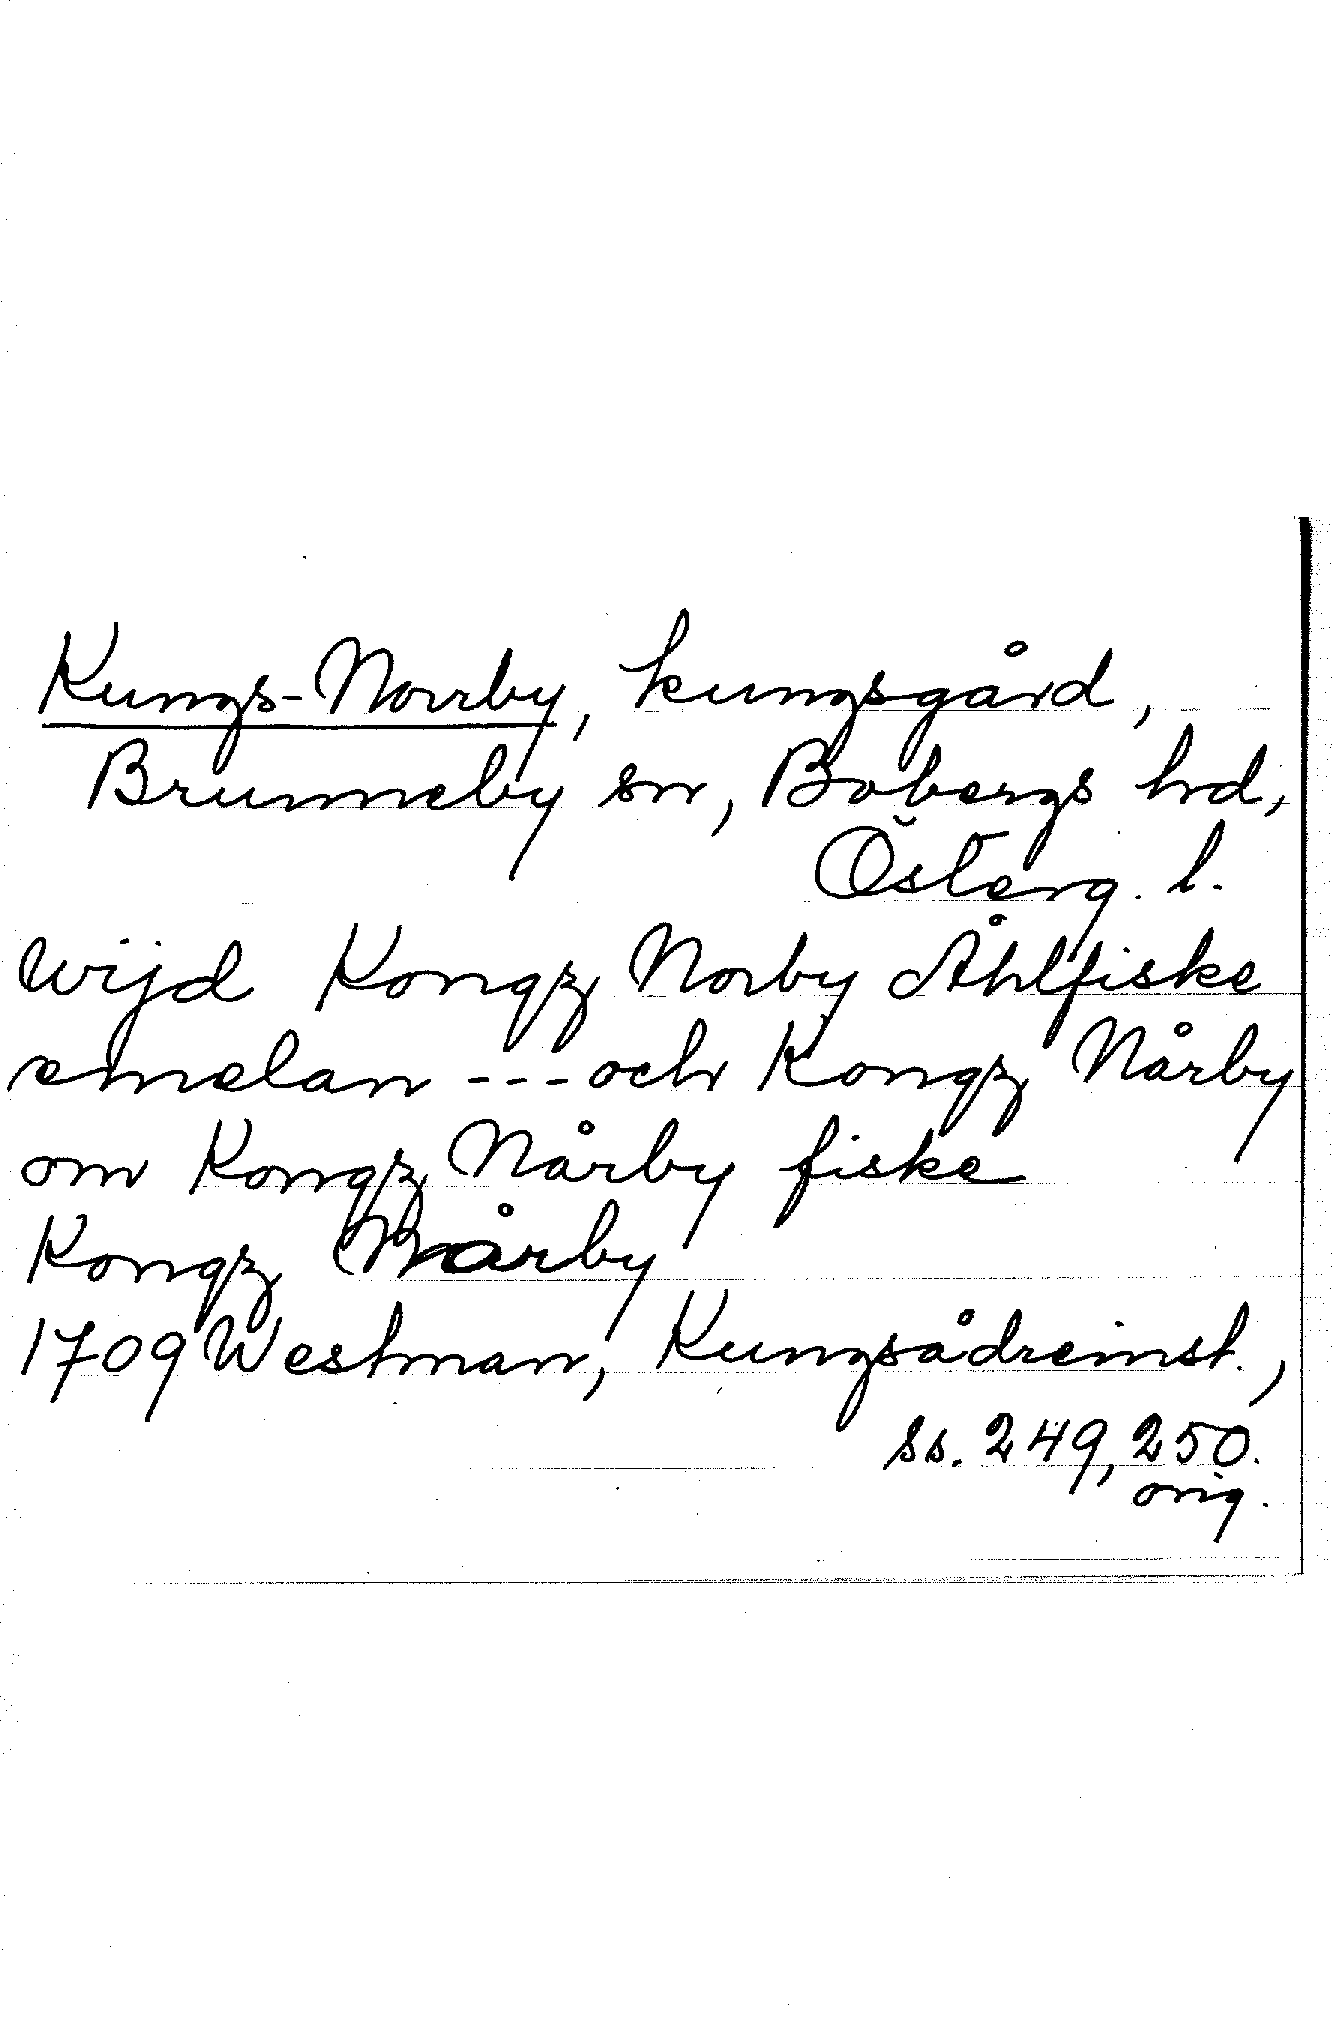 Kungs-Norrby, kungsgård,
Brunneby sn, Bobergs hd,
Österg. l.
Wijd Kongz Norby Åhlfiske
emelan --- och Kongz Nårby
om Kongz Nårby fiske
Kongz Nårby
1709 Westman, Kungsådreinst.,
ss. 249, 250.
orig.